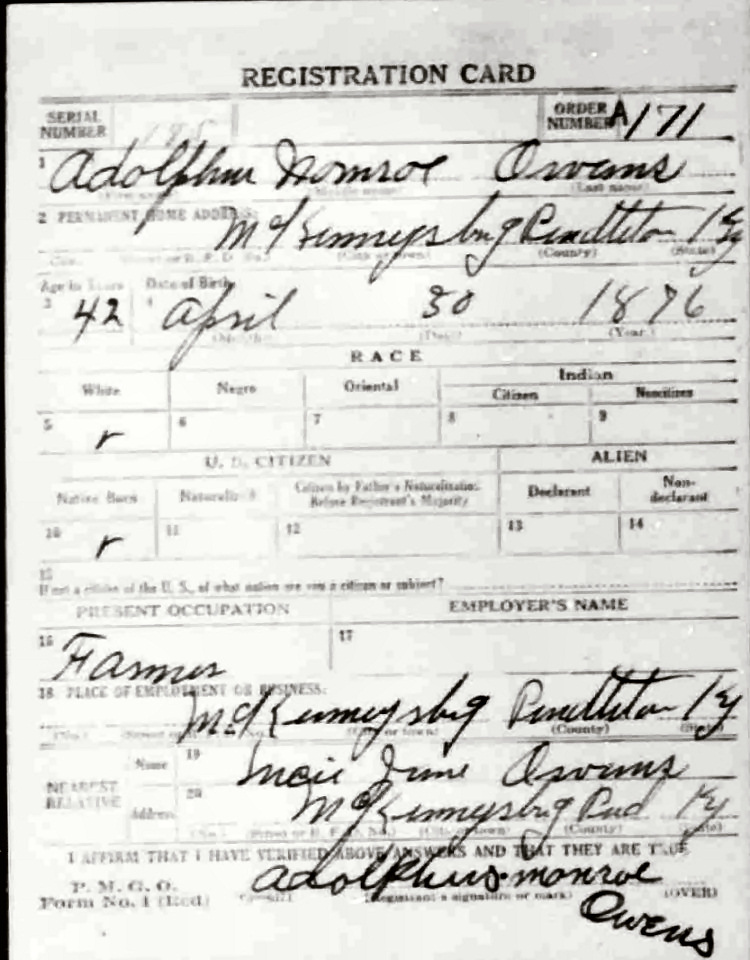 REGISTRATION CARD
SERIAL NUMBER 185 ORDER NUMBER A171
1 Adolphus Monroe Owens
(First name) (Middle name) (Last name)
2 PERMANENT HOME ADDRESS:
McKinneysburg Pendleton Ky
(No.) (Street or R. F. D. No.) (City or town) (County) (State)
Age in Years Date of Birth
3 42 4 April 30 1876
(Month) (Day) (Year)
RACE
White Negro Oriental Indian
Citizen Noncitizen
5 r 6 7 8 9
U. S. CITIZEN ALIEN
Native Born Naturalized Citizen by Father's Naturalization Before Registrant's Majority Declarant Non-declarant
10 r 11 12 13 14
15
If not a citizen of the U. S., of what nation are you a citizen or subject?
PRESENT OCCUPATION EMPLOYER'S NAME
16 Farmer 17
18 PLACE OF EMPLOYMENT OR BUSINESS:
McKinneysburg Pendleton Ky
(No.) (City or town) (County) (State)
NEAREST RELATIVE
Name 19 June Owens
Address 20 McKinneysburg Pend Ky
(No.) (Street or R. F. D. No.) (City or town) (County) (State)
I AFFIRM THAT I HAVE VERIFIED ABOVE ANSWERS AND THAT THEY ARE TRUE
P. M. G. O.
Form No. 1 (Red) Adolphus Monroe
(Registrant's signature or mark) (OVER)
Owens